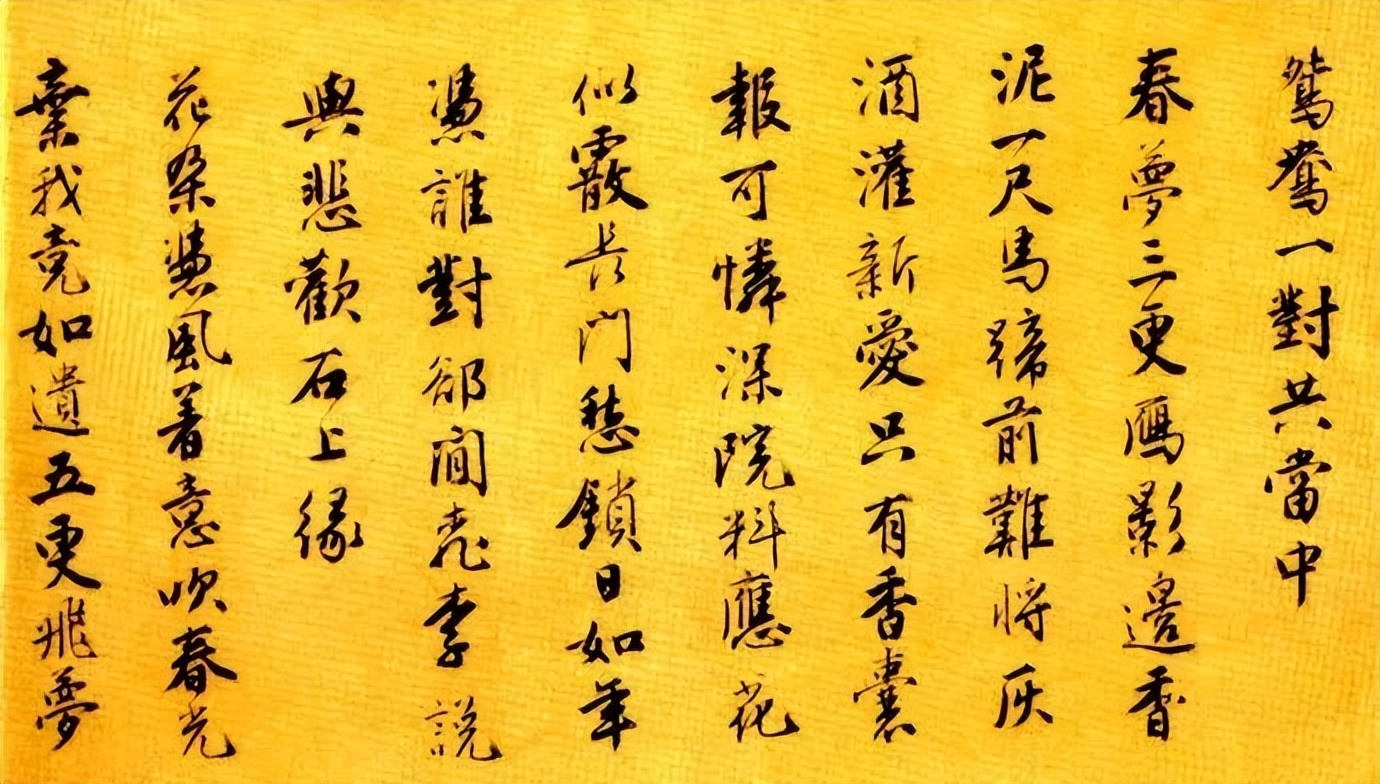 鴛鴦一對共當中
春夢三更鴈影邊香
泥一尺馬蹄前難將灰
酒灌新愛只有香囊
報可憐深院料應花
似霰長門愁鎖日如年
憑誰對郤閒桃李說
與悲歡石上緣
花朶憑風著意吹春光
棄我竟如遺五更飛夢